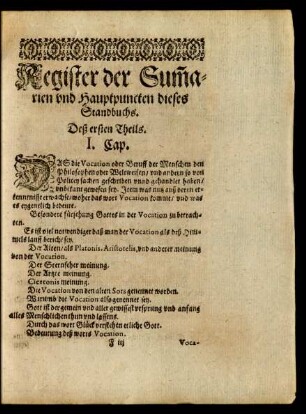 Register der Sum̃a-
rien vnd Hauptpuncten dieses
Standbuchs.
Deß ersten Theils.
I. Cap.
DAS die Vocation oder Beruff der Menschen den
Philosophen oder Weltweisen / vnd andern so von
Policey sachen geschrieben vnnd gehandlet haben /
vnbekant gewesen sey. Item was nutz auß deren er-
kenntnuß erwachse / woher das wort Vocation komme / vnd was
es eygentlich bedeute.
Besondere fürsehung Gottes in der Vocation zu betrach-
ten.
Es ist viel notwendiger daß man der Vocation als deß Him-
mels lauff bericht sey.
Der Alten / als Platonis, Aristotelis, vnd anderer meinung
von der Vocation.
Der Sternseher meinung.
Der Artzte meinung.
Ciceronis meinung.
Die Vocation von den alten Sors genennet worden.
Warumb die Vocation also genennet sey.
Gott ist der gemein vnd aller gewissest vrsprung vnd anfang
alles Menschlichen thun vnd lassens.
Durch das wort Glück verstehen etliche Gott.
Bedeutung deß worts Vocation.
Voca-